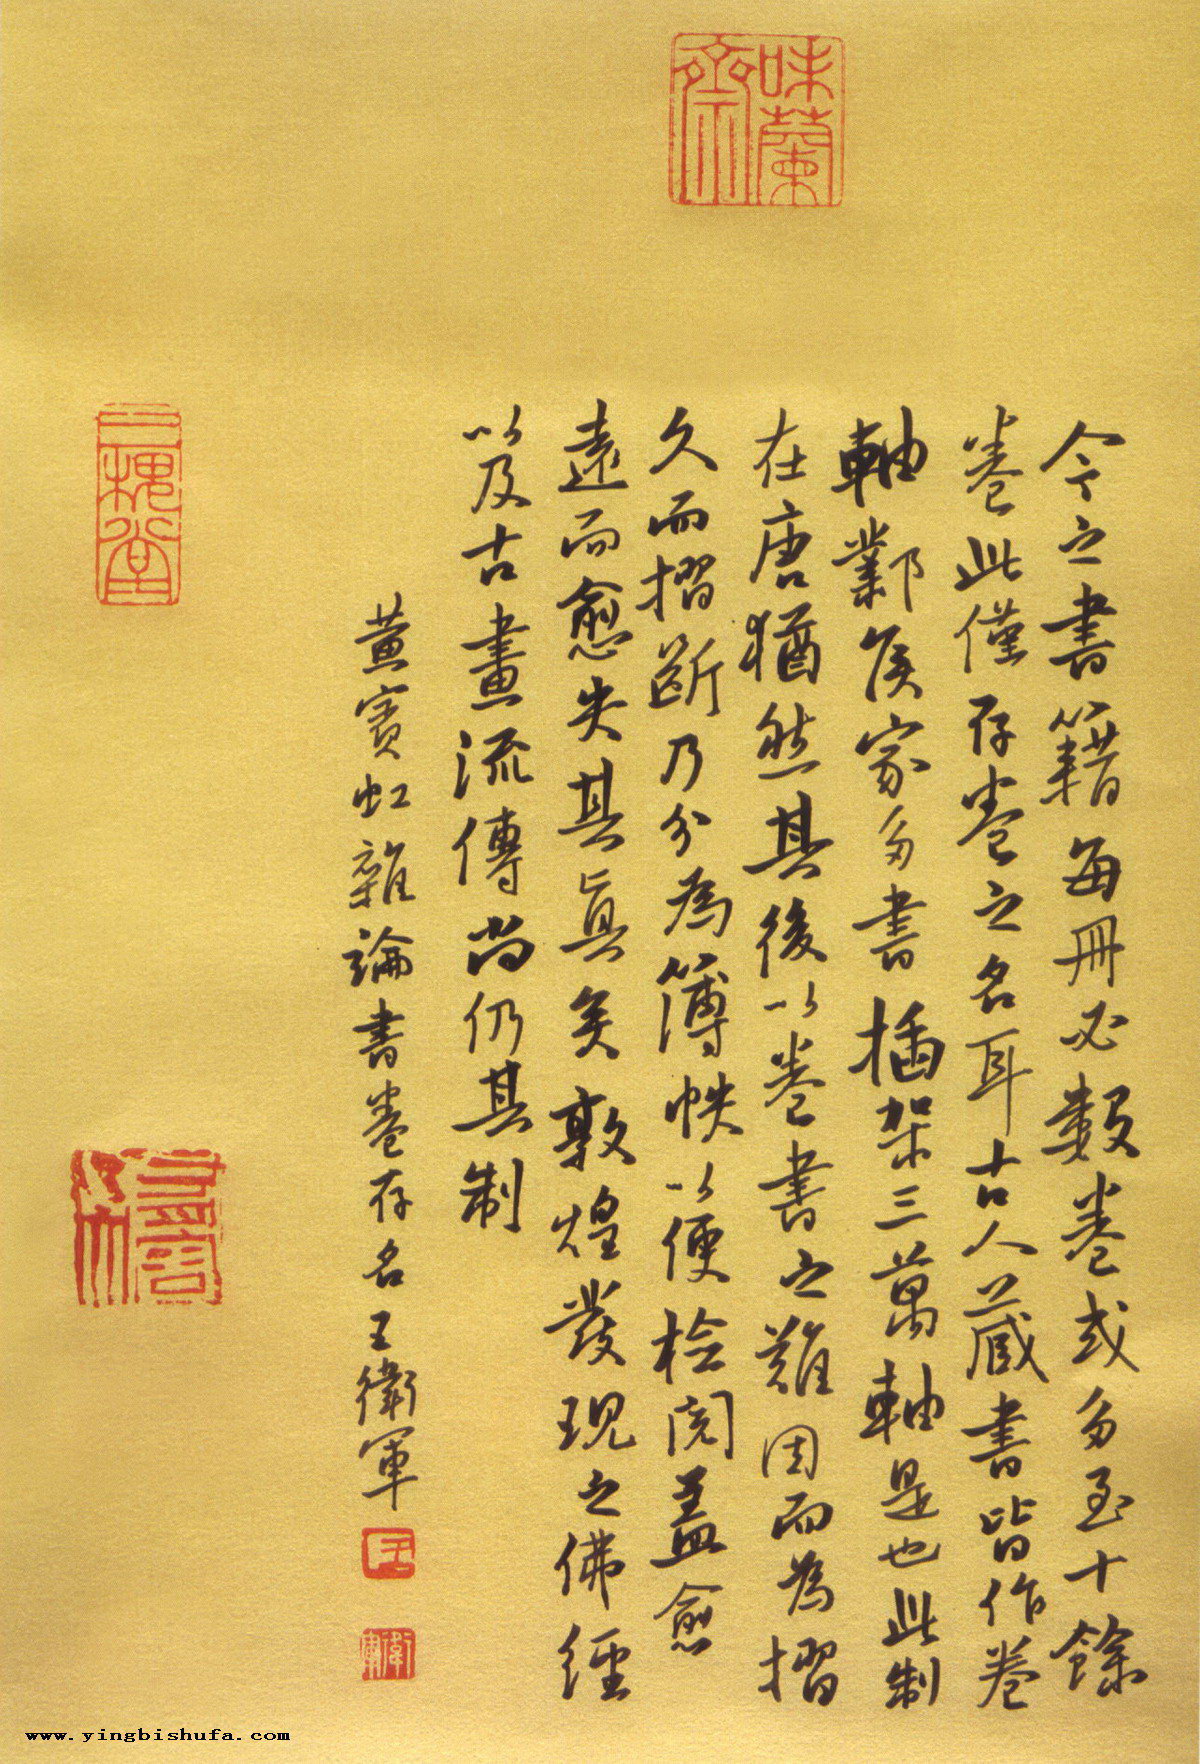 今之書籍每冊必數卷或多至十餘
卷此僅存卷之名耳古人藏書皆作卷
軸鄴侯家多書插架三萬軸是也此制
在唐猶然其後以卷書之難因而為摺
久而摺斷乃分為簿帙以便檢閱蓋愈
遠而愈失其真矣敦煌發現之佛經
以及古畫流傳尚仍其制
黃賓虹雜論書卷存名王衛軍
味蘭
齋
王
衛軍
www.yingbishufa.com